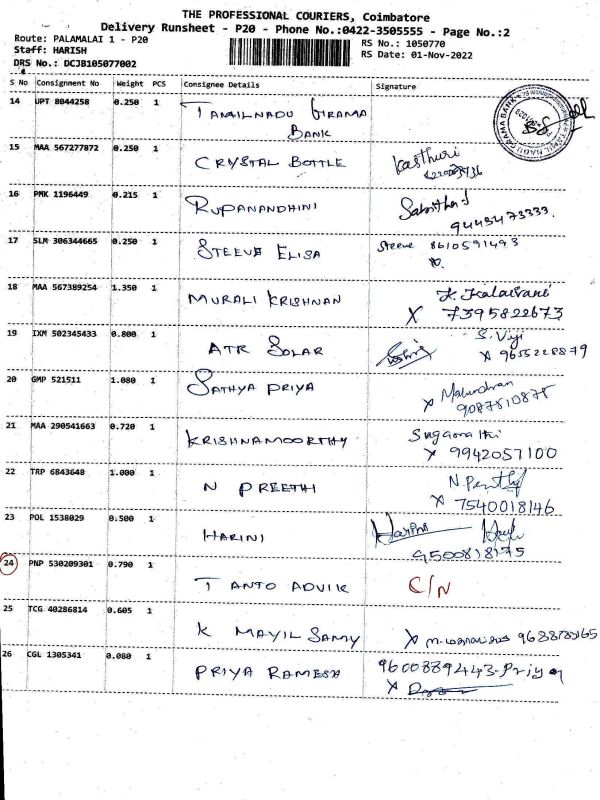 THE PROFESSIONAL COURIERS, Coimbatore
Delivery Runsheet - P20 - Phone No.:0422-3505555 - Page No.:2
Route: PALAMALAI 1 - P20
RS No.: 1050770
Staff: HARISH
RS Date: 01-Nov-2022
DRS No.: DCJB105077002
S No Consignment No Weight PCS Consignee Details Signature
14 UPT 8044258 0.250 1 TAMILNADU GRAMA
BANK
15 MAA 567277872 0.250 1 CRYSTAL BOTTLE Kasthuri
16 PMK 1196449 0.215 1 RUPANANDHINI
9443473333.
17 SLM 306344665 0.250 1 STEEVE ELISA Steeve 8610591493
18 MAA 567389254 1.350 1 MURALI KRISHNAN K. Kalaivani
X 7395822673
19 IXM 502345433 0.800 1 ATR SOLAR S. Viji
X 9655228879
20 GMP 521511 1.080 1 SATHYA PRIYA Mahendran
X 9087810878
21 MAA 290541663 0.720 1 KRISHNAMOORTHY
X 9942057100
22 TRP 6843648 1.000 1 N PREETHI
X 7540018146
23 POL 1538029 0.500 1 HARINI Harini
9500818175
24 PNP 530209301 0.790 1 T ANTO ADVIK C/N
25 TCG 40286814 0.605 1 K MAYIL SAMY X
26 CGL 1305341 0.080 1 PRIYA RAMESH 9600889443-Priya
X